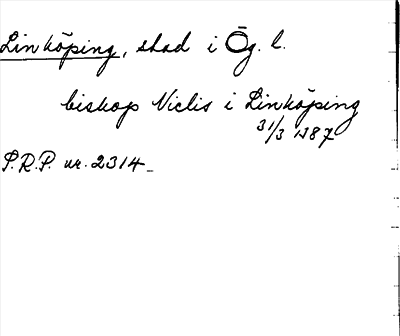 Linköping, stad i Ög. l.
biskop Niclis i Linköping
31/3 1387
S.R.P. nr. 2314